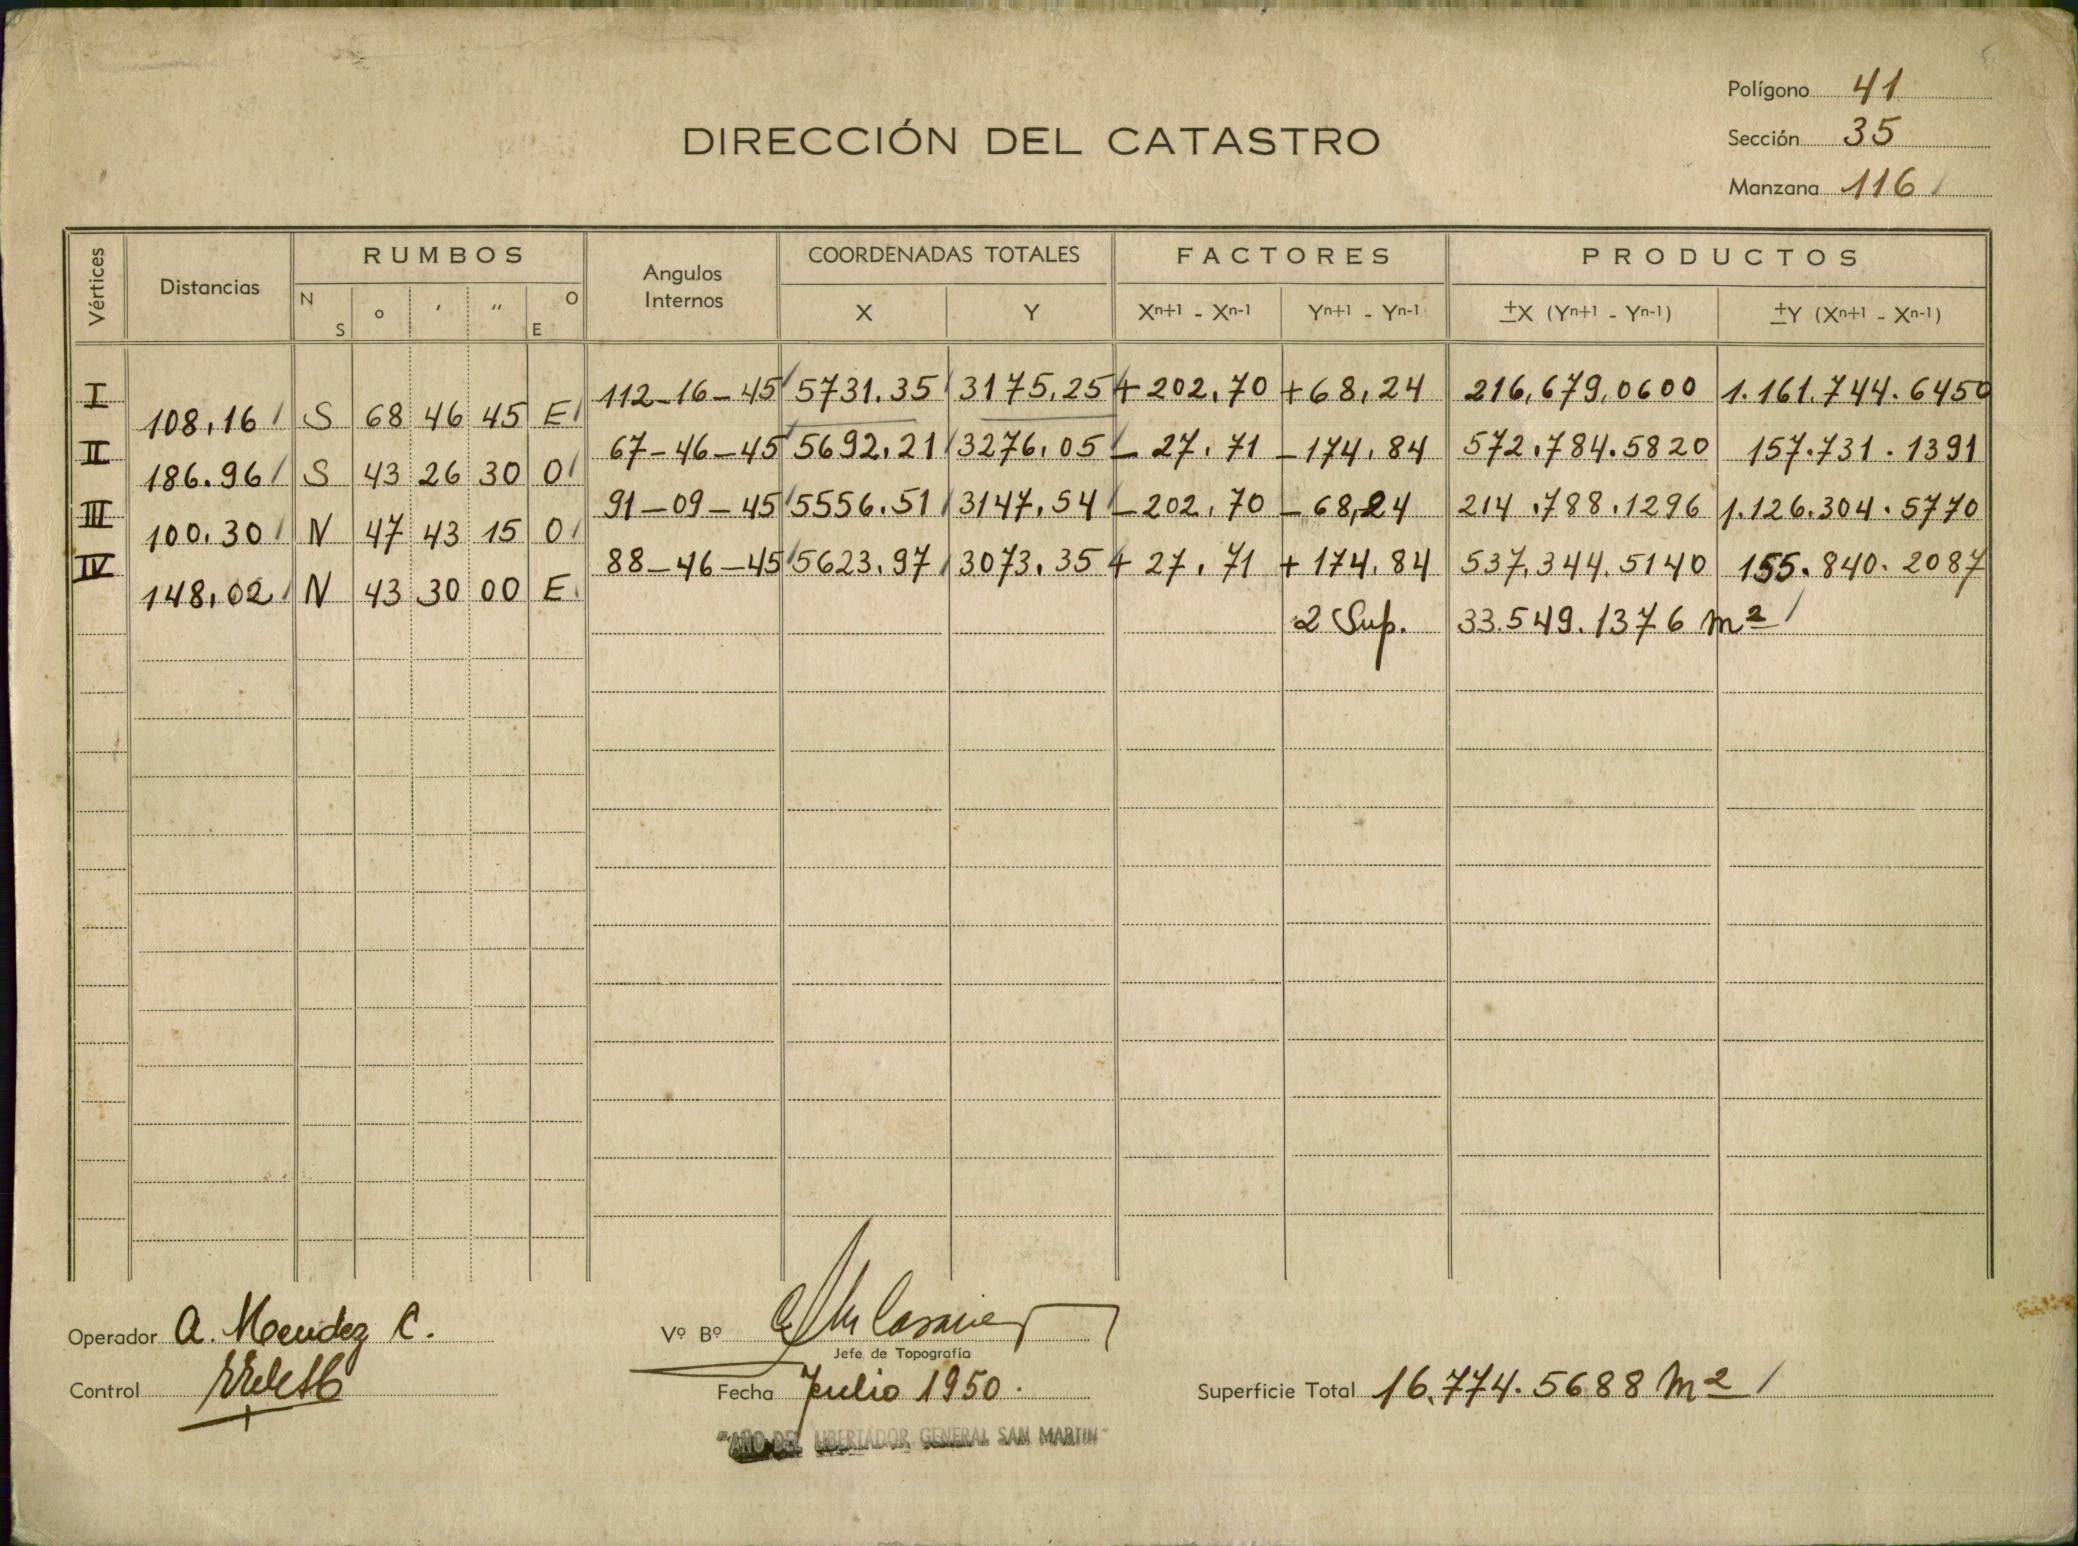 Polígono 41
DIRECCIÓN DEL CATASTRO
Sección 35
Manzana 116
Vértices Distancias RUMBOS Angulos Internos COORDENADAS TOTALES FACTORES PRODUCTOS
N S ° ′ ″ O E X Y Xn+1 - Xn-1 Yn+1 - Yn-1 ±X (Yn+1 - Yn-1) ±Y (Xn+1 - Xn-1)
I 112-16-45 5731.35 3175.25 +202,70 +68,24 216,679,0600 1.161.744.6450
108,16 S 68 46 45 E
II 67-46-45 5692.21 3276.05 -27.71 -174.84 572.784.5820 157.731.1391
186.96 S 43 26 30 O
III 91-09-45 5556.51 3147.54 -202.70 -68,24 214.788.1296 1.126.304.5770
100.30 N 47 43 15 O
IV 88-46-45 5623.97 3073.35 +27.71 +174.84 537.344.5140 155.840.2087
148,02 N 43 30 00 E
2 Sup. 33.549.1376 m²
Operador A. Mendez C. Vº Bº
Jefe de Topografía
Control Fecha Julio 1950. Superficie Total 16.774.5688 m²
"AÑO DEL LIBERTADOR GENERAL SAN MARTIN"